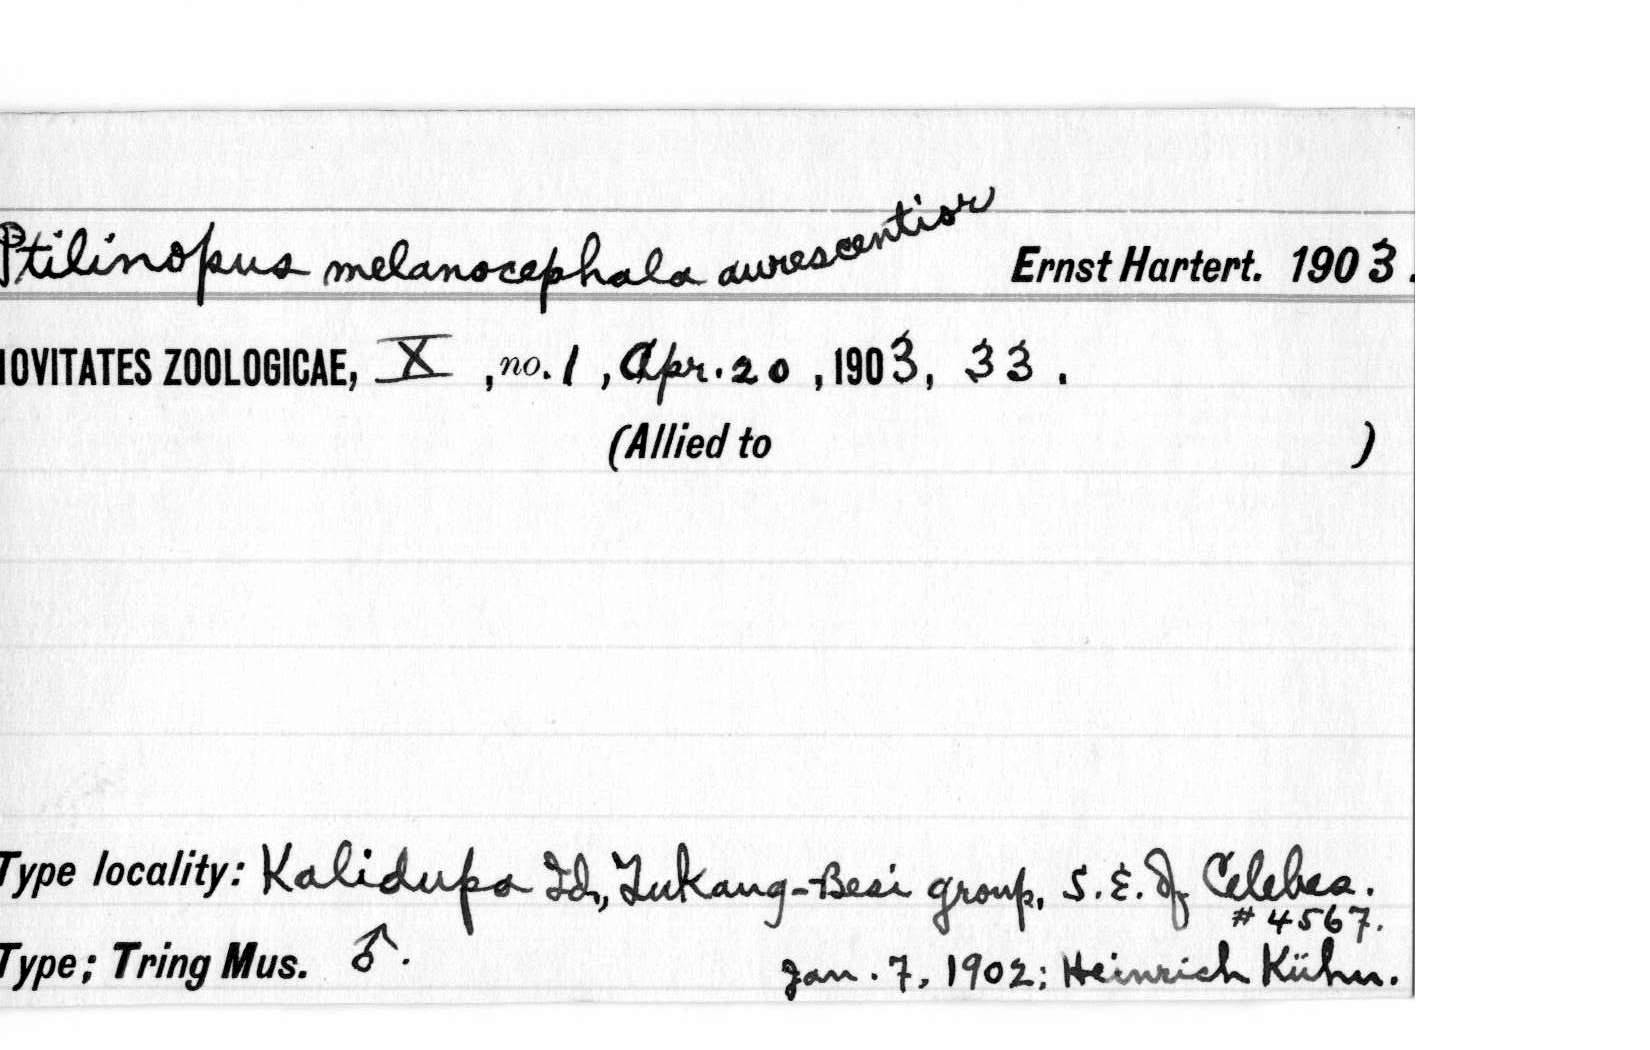 Ptilinopus melanocephala aurescentior Ernst Hartert. 1903.
NOVITATES ZOOLOGICAE, X, no. 1, Apr. 20, 1903, 33.
(Allied to )
Type locality: Kalidupa Id., Tukang-Besi group, S.E. of Celebes.
#4567.
Type; Tring Mus. ♂. Jan. 7, 1902; Heinrich Kühn.